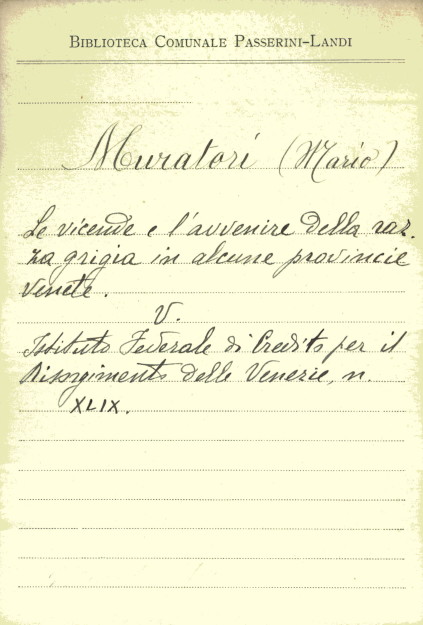 BIBLIOTECA COMUNALE PASSERINI-LANDI
Muratori (Mario)
Le vicende e l'avvenire della raz-
za grigia in alcune provincie
venete.
V.
Istituto Federale di Credito per il
Risorgimento delle Venezie, n.
XLIX.